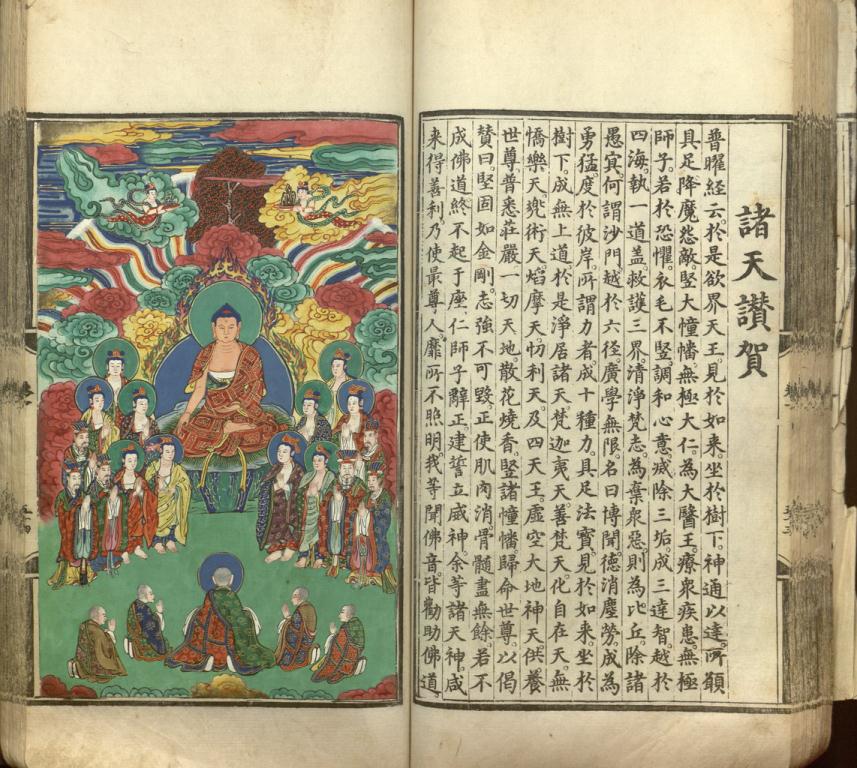 諸天讃賀
普曜經云。於是欲界天王。見於如來。坐於樹下。神通以達。所願
具足。降魔怨敵。竪大幢幡。無極大仁。為大醫王。療衆疾患。無極
師子。若於恐懼。衣毛不竪。調和心意。滅除三垢。成三達智。越於
四海。執一道盖。救護三界。清淨梵志。為棄衆惡。則為比丘。除諸
愚冥。何謂沙門。越於六径。廣學無限。名曰博聞。德消塵勞。成為
勇猛。度於彼岸。所謂力者。成十種力。具足法寳。見於如來。坐於
樹下。成無上道。於是淨居諸天。梵迦夷天。善梵天。化自在天。無
憍樂天。兠術天。焰摩天。忉利天。及四天王。虛空大地神天。供養
世尊。普悉莊嚴一切天地。散花燒香。竪諸幢幡。歸命世尊。以偈
賛曰。堅固如金剛。志強不可毀。正使肌肉消。骨髓盡無餘。若不
成佛道。終不起于座。仁師子辭。正建誓立威神。余等諸天神。咸
来得善利。乃使最尊人。靡所不照明。我等聞佛音。皆勸助佛道。